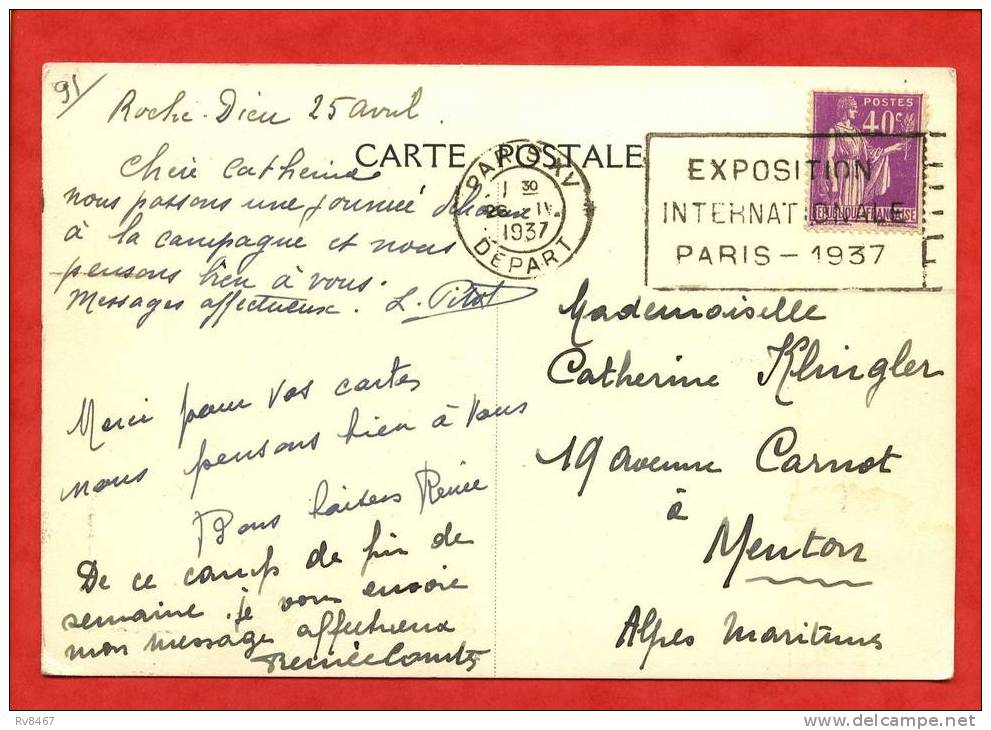 91/
Roche-Dieu 25 avril.
CARTE POSTALE
Chère Catherine
nous passons une journée
à la campagne et nous
pensons bien à vous.
Messages affectueux. L. Pitot
Merci pour vos cartes
nous pensons bien à vous
Bons baisers Renée
De ce camp de fin de
semaine je vous envoie
mon message affectueux
Renée
PARIS XV
1 30
26 - IV
1937
DÉPART
EXPOSITION
INTERNATIONALE
PARIS - 1937
POSTES
40c
REPUBLIQUE FRANÇAISE
Mademoiselle
Catherine Klingler
19 avenue Carnot
à
Menton
Alpes Maritimes
Rv8467
www.delcampe.net